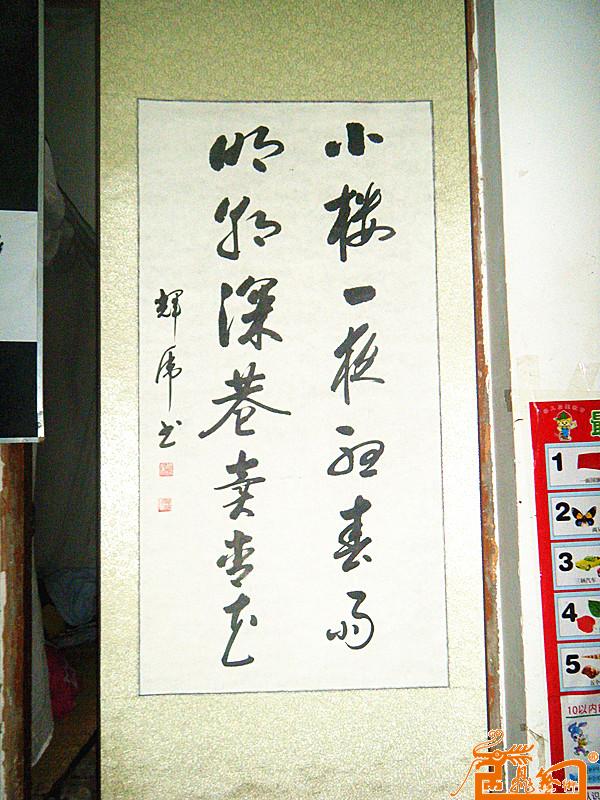 小楼一夜聽春雨
明朝深巷賣杏花
輝
书
最
1
2
3
4
5
10以内